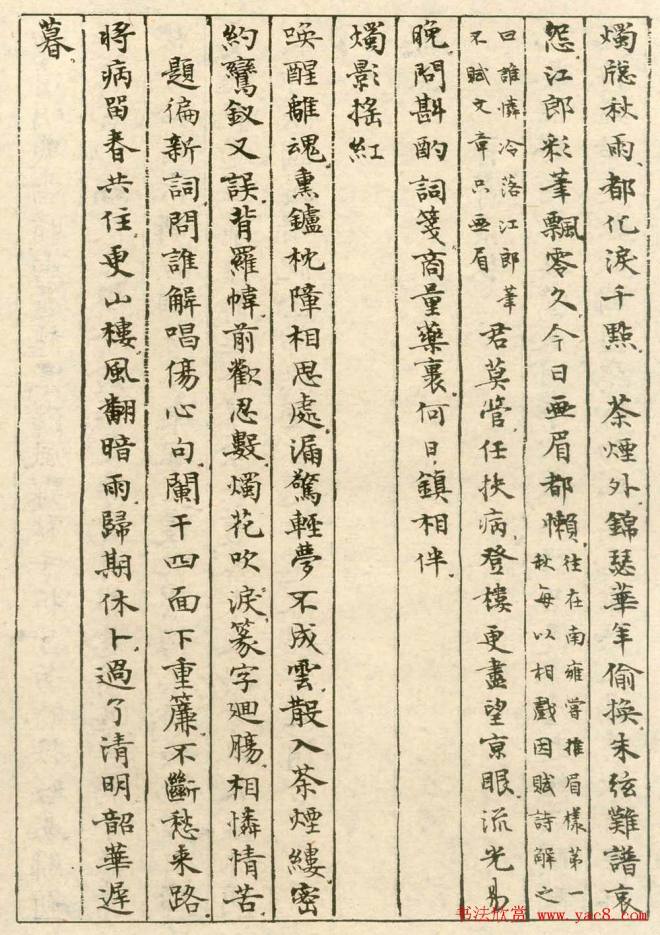 燭牕秋雨都化淚千點　茶煙外錦瑟華年偷換朱弦難譜哀
怨江郎彩筆飄零久今日画眉都懶
往在南雍嘗推眉樣第一
秋每以相戲因賦詩解之
曰誰憐冷落江郎筆
不賦文章只画眉
君莫管任扶病登樓更盡望京眼流光易
晚問斟酌詞箋商量藥裹何日鎮相伴
燭影搖紅
喚醒離魂熏鑪枕障相思處漏驚輕夢不成雲散入茶煙縷密
約鸞釵又誤背羅幃前歡忍數燭花吹淚篆字迴腸相憐情苦
題徧新詞問誰解唱傷心句闌干四面下重簾不斷愁來路
將病留春共住更山樓風翻暗雨歸期休卜過了清明韶華遲
暮
书法欣赏 www.yac8.com